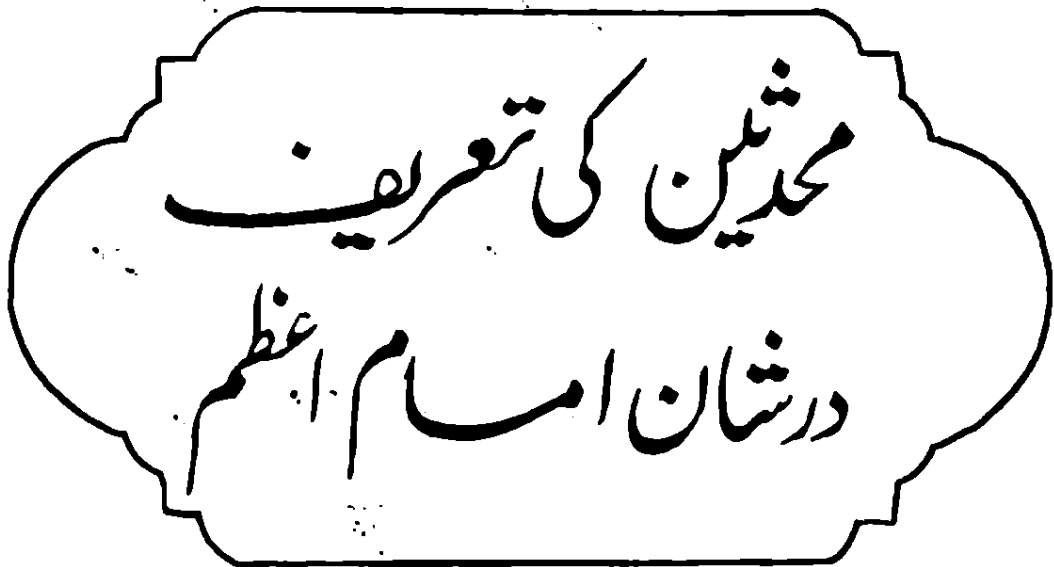 محدثین کی تعریف
در شان امام اعظم